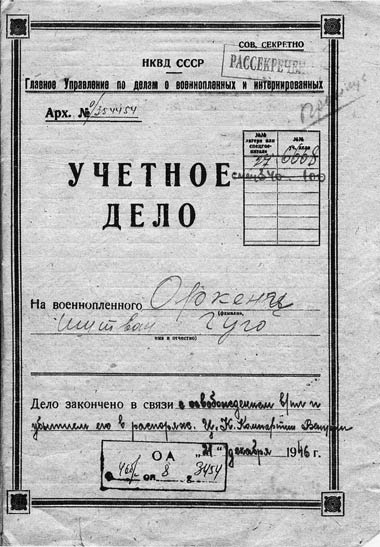 СОВ. СЕКРЕТНО
НКВД СССР
РАССЕКРЕЧЕНО
Главное Управление по делам о военнопленных и интернированных
Арх. № 0/354454
№№ лагеря или спецгоспиталя
№№ уч. дела
27 0008
спец 340. 100
УЧЕТНОЕ
ДЕЛО
На военнопленного Оркень
(фамилия,
Иштван Гуго
имя и отчество)
Дело закончено в связи с освобождением в/пл и
убытием его в распоряж. Ц.К. Компартии Венгрии
"21" декабря 1946 г.
ОА
8
3454